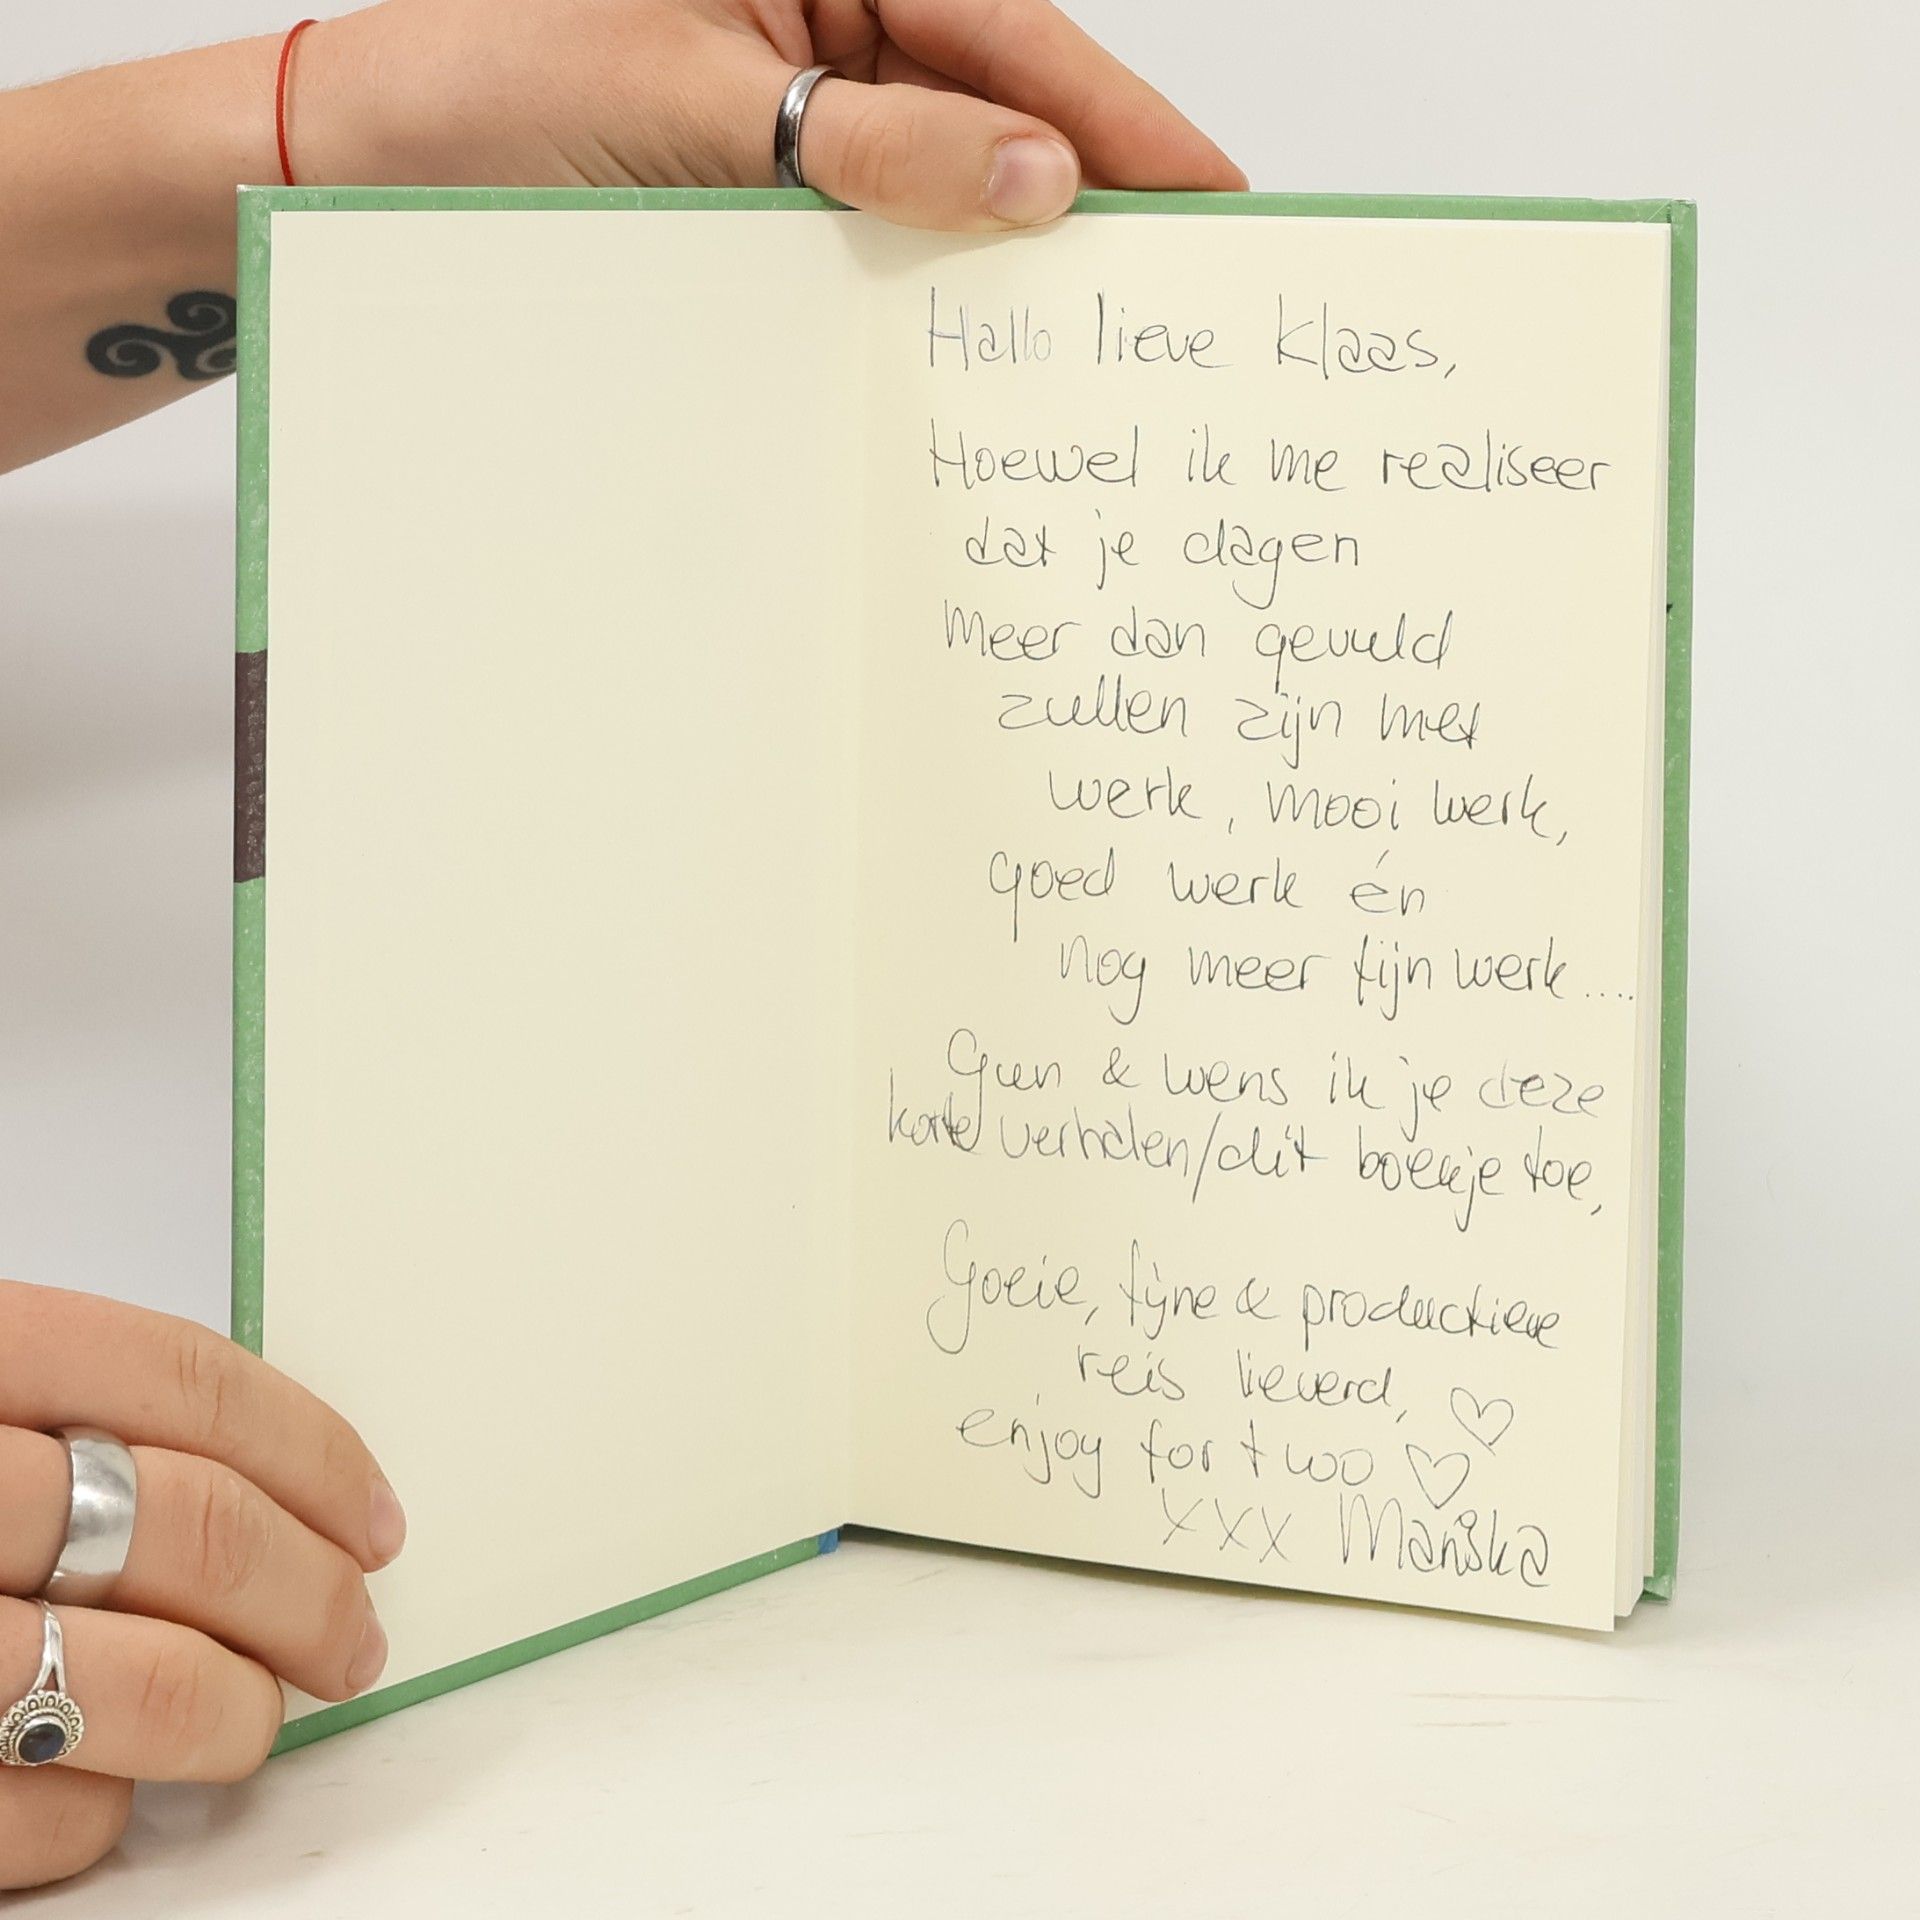 Hallo lieve Klaas,
Hoewel ik me realiseer
dat je dagen
meer dan gevuld
zullen zijn met
werk, mooi werk,
goed werk én
nog meer fijn werk....
Gun & wens ik je deze
korte verhalen/dit boekje toe,
Goeie, fijne & productieve
reis lieverd,
enjoy for two
xxx Mariska